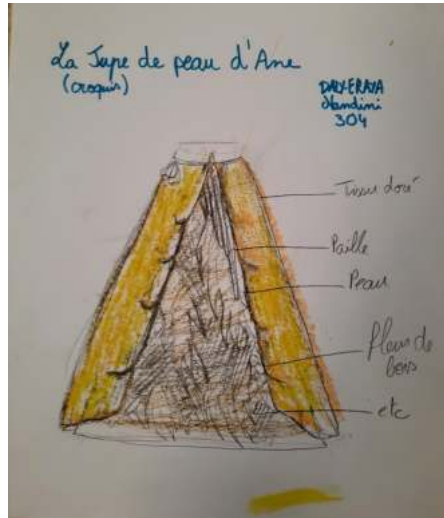 La Jupe de peau d'Ane
(croquis)
Nandini
304
Tissu doré
Paille
Peau
fleurs de
bois
etc